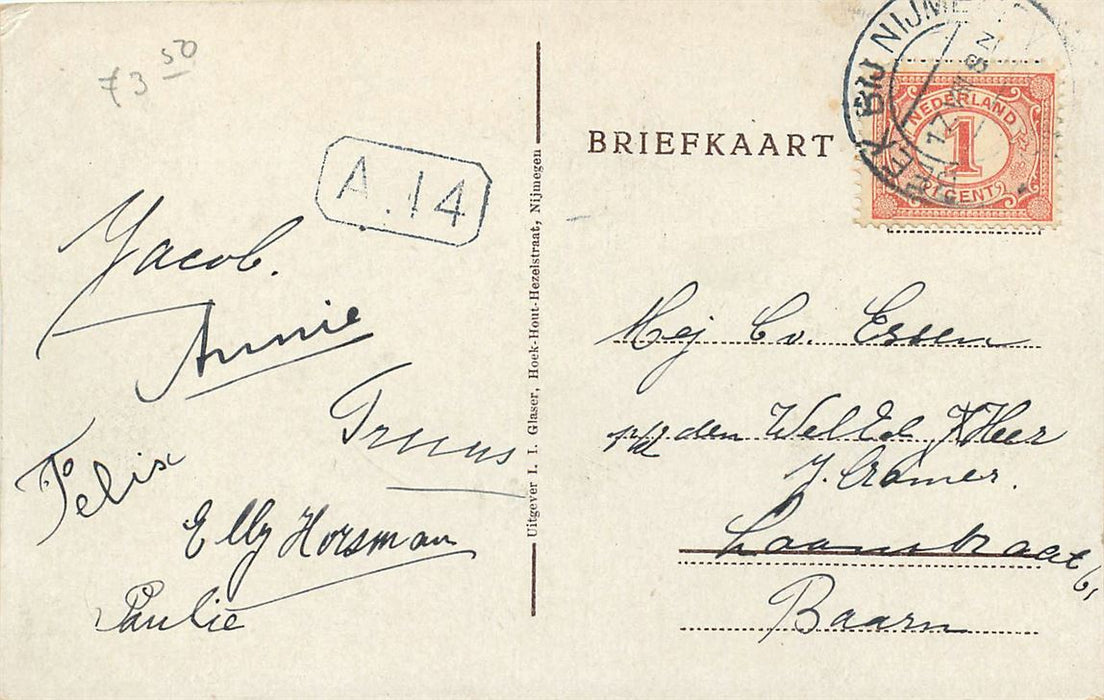 73 50
A.14
Jacob.
Annie
Truus
Felix
Elly Horsman
Paulie
Uitgever I. I. Glaser, Hoek-Hout-Hezelstraat, Nijmegen
BRIEFKAART
BEEK BIJ NIJME
NEDERLAND
1
1 CENT
Mej C v. Essen
p/a den WelEd Heer
J. Cramer.
Laanstraat 61
Baarn